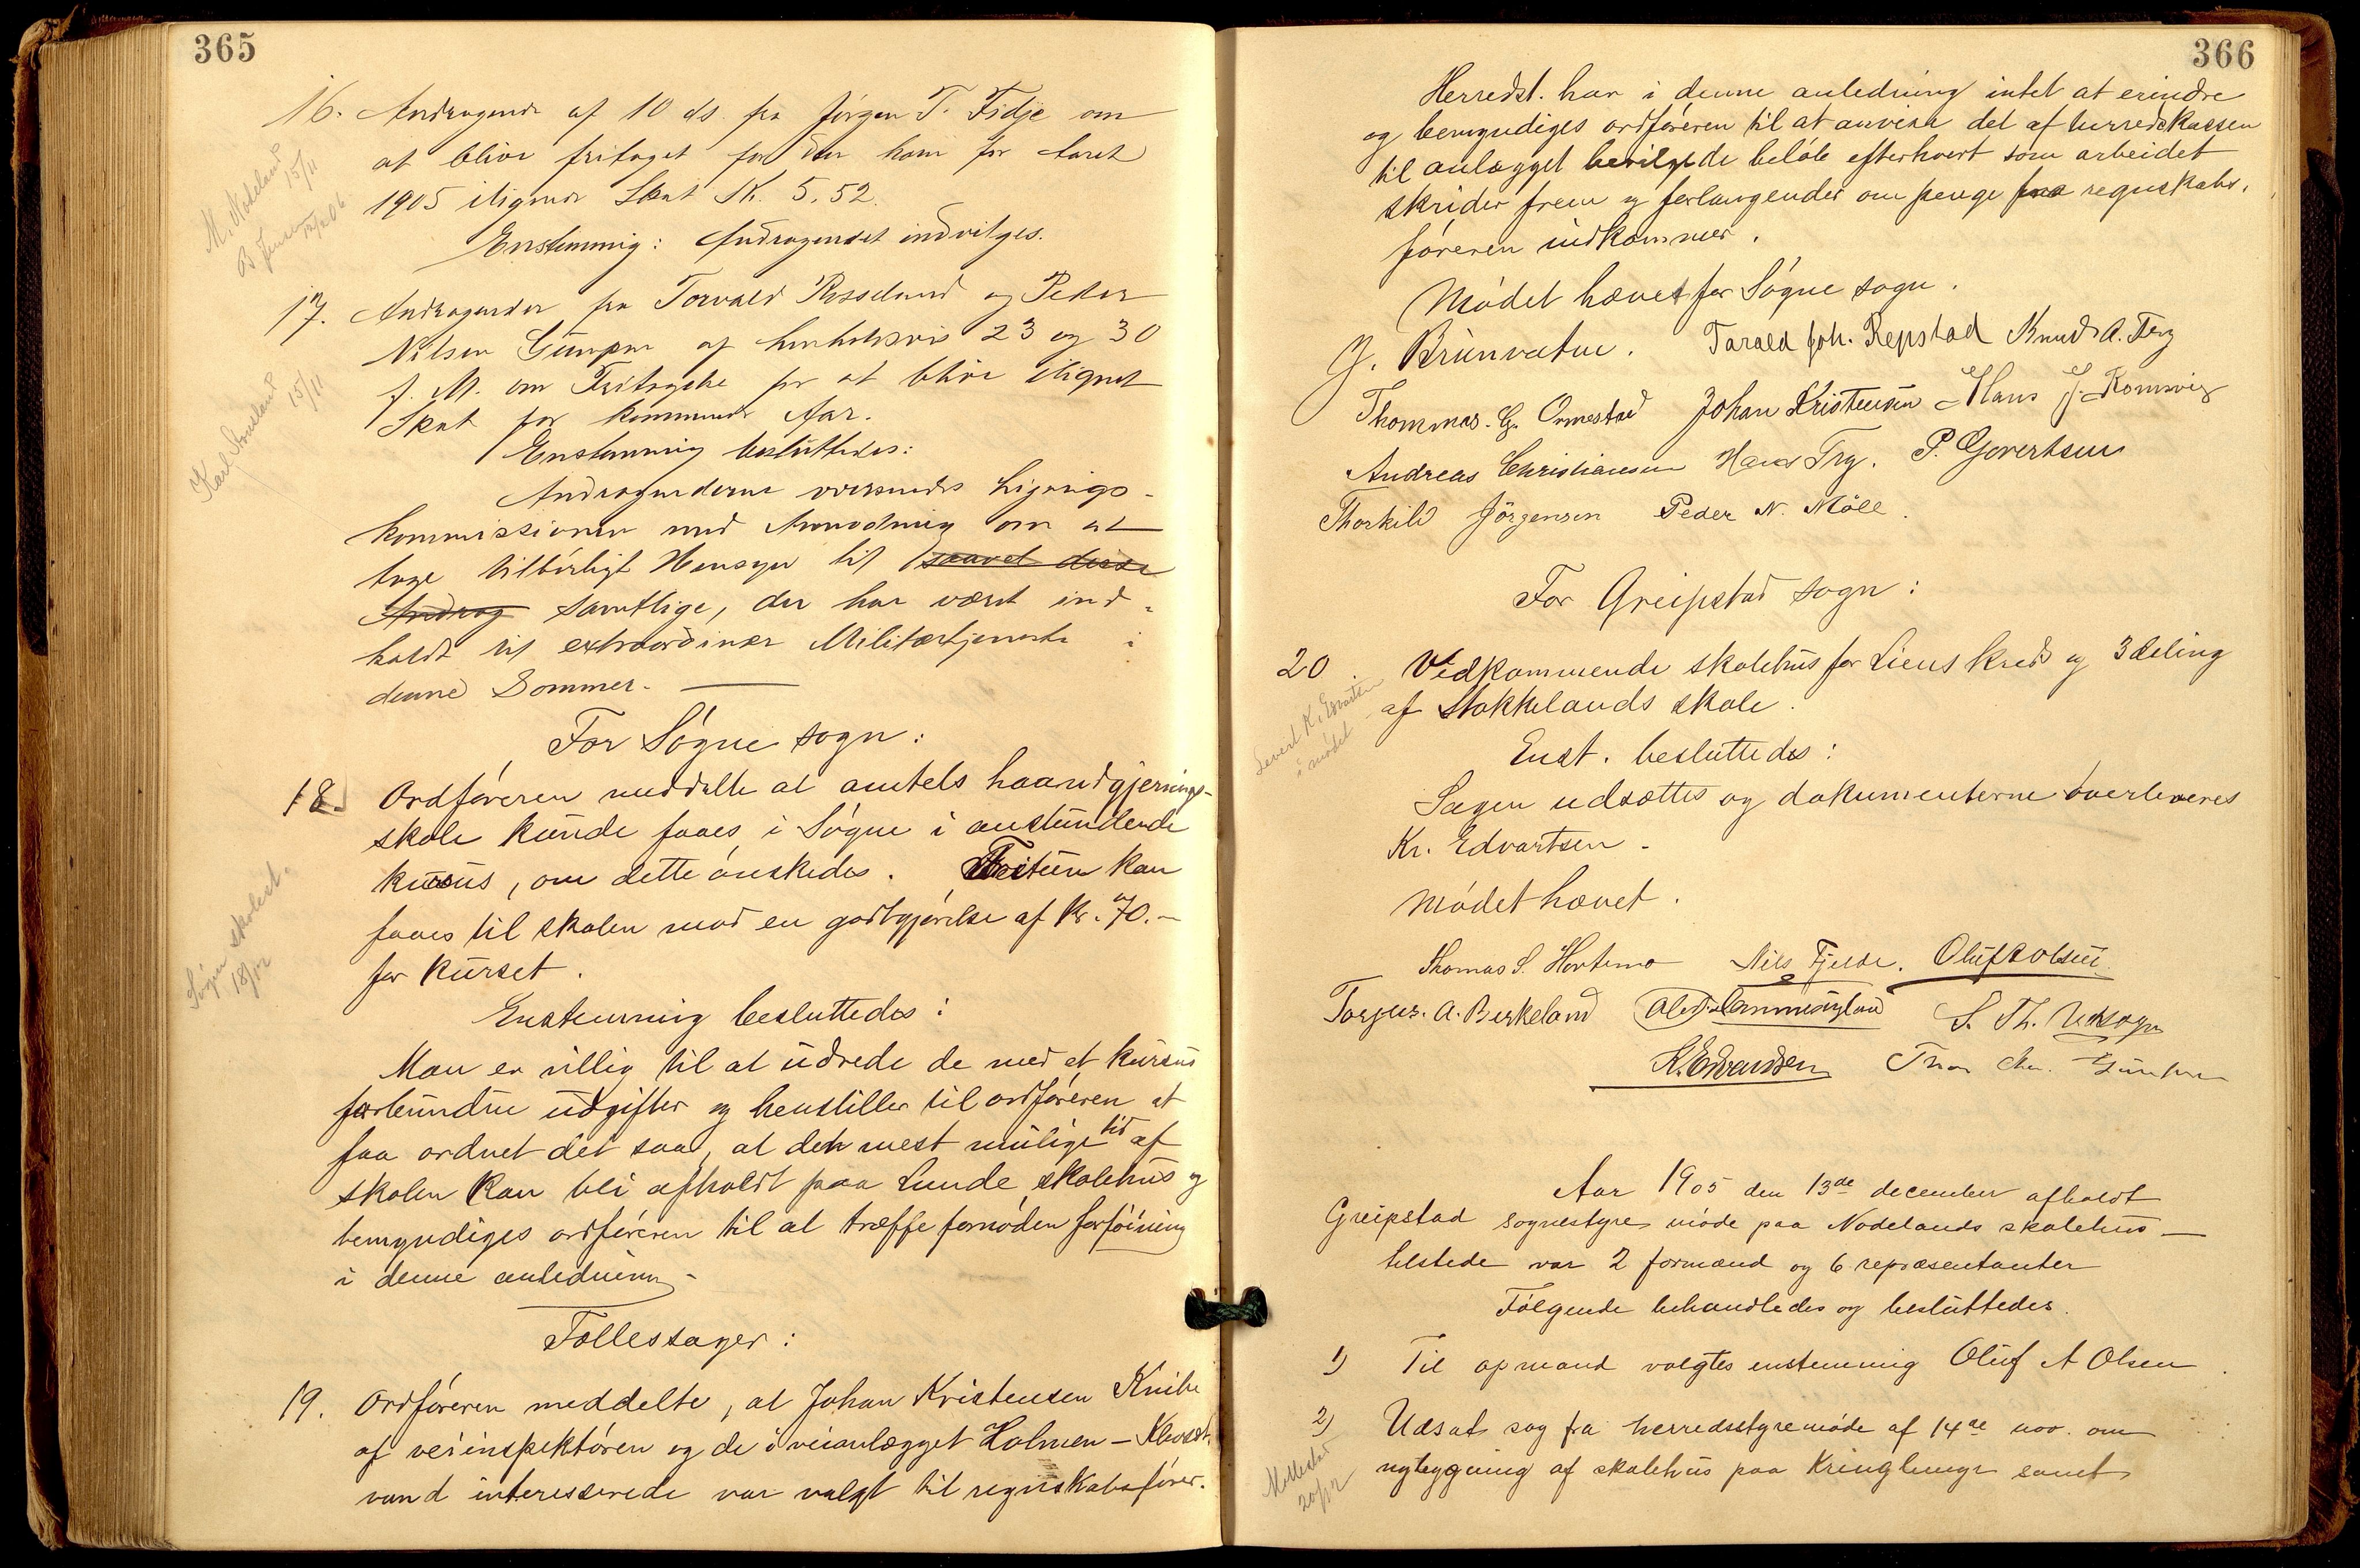 365
16. Andragende af 10 ds. fra Jørgen T. Fidje om
at blive fritaget for den ham for Aaret
1905 ilignede Skat Kr. 5,52.
Enstemmig: Andragendet indvilges.
M. Nodeland 15/11
17. Andragender fra Torvald Rosseland og Peder
Nilsen Gumpen af henholdsvis 23 og 30
f. M. om Fritagelse for at blive ilignet
Skat for kommende Aar.
Enstemmig besluttedes:
Karl Stousland 15/11
Andragenderne oversendes Lignings-
kommissionen med Anmodning om at
tage tilbørligt Hensyn til saavel disse
Andrag samtlige, der har været ind-
kaldt til extraordinær Militærtjeneste i
denne Sommer.
For Søgne sogn:
18. Ordføreren meddelte at amtets haandgjernings-
skole kunde faaes i Søgne i anstundende
kursus, om dette ønskedes. kan
faaes til skolen mod en godtgjørelse af Kr. 70.-
for kurset.
Enstemmig besluttedes:
Søgne skolest.
18/12
Man er villig til at udrede de med et kursus
forbundne udgifter og henstiller til ordføreren at
faa ordnet det saa, at den mest mulige tid af
skolen kan bli afholdt paa Lunde skolehus og
bemyndiges ordføreren til at træffe fornøden forføining
i denne anledning.
Fællessager:
19. Ordføreren meddelte, at Johan Kristensen Knibe
af veiinspektøren og de i veianlægget Holmen –
vand interesserede var valgt til regnskabsfører.
366
Herredst. har i denne anledning intet at erindre
og bemyndiges ordføreren til at anvise det af herredskassen
til anlægget bevilgede beløb efterhvert som arbeidet
skrider frem og forlangender om penge fra regnskabs-
føreren indkommer.
Mødet hævet for Søgne sogn.
J. Brunvatne. Tarald Joh. Repstad Knud A. Try
Thommas. G. Ormestad Johan Kristensen Hans J. Romsvig
Andreas Christiansen Hans Try. P. Govertsen
Thorkild Jørgensen Peder N. Møll.
For Greipstad sogn:
20. Vedkommende skolehus for Liens kreds og 3deling
af Stokkelands skole.
Levert K. Edvartsen
i mødet
Enst. besluttedes:
Sagen udsættes og dokumenterne overleveres
Kr. Edvartsen.
Mødet hævet.
Thomas S. Hortemo Nils Fjelde. Oluf A Olsen
Torjus. A. Birkeland S. Th. Uksogn
K. Edvardsen Chr. Gumpen
Aar 1905 den 13de december afholdt
Greipstad sognestyre møde paa Nodelands skolehus —
tilstede var 2 formænd og 6 repræsentanter
Følgende behandledes og besluttedes.
1) Til opmand valgtes enstemmig Oluf A Olsen.
2) Udsat sag fra herredsstyremøde af 14de nov. om
nybygning af skolehus paa Kringlemyr samt
20/12